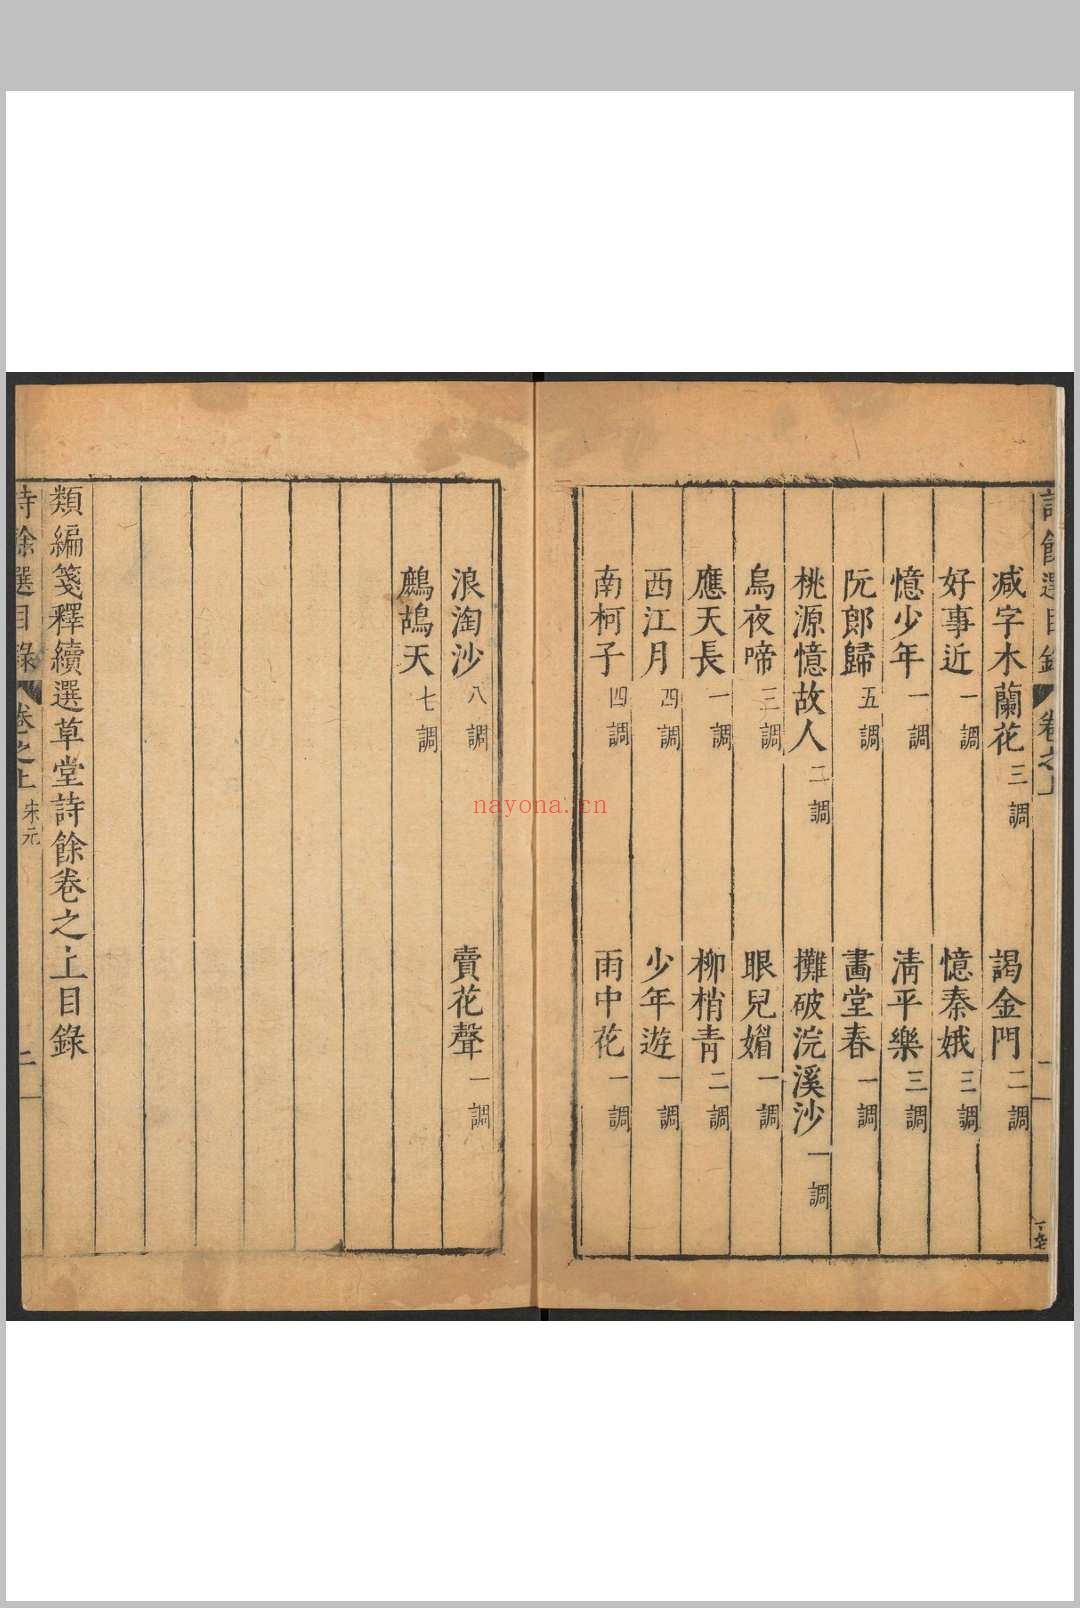 減字木蘭花 三調 謁金門 二調
好事近 一調 憶秦娥 三調
憶少年 一調 清平樂 三調
阮郎歸 五調 畫堂春 一調
桃源憶故人 二調 攤破浣溪沙 一調
烏夜啼 三調 眼兒媚 一調
應天長 一調 柳梢青 二調
西江月 四調 少年遊 一調
南柯子 四調 雨中花 一調
浪淘沙 八調 賣花聲 一調
鷓鴣天 七調
類編箋釋續選草堂詩餘卷之上目錄
詩餘選目錄 卷之上 宋元 二
nayona.cn